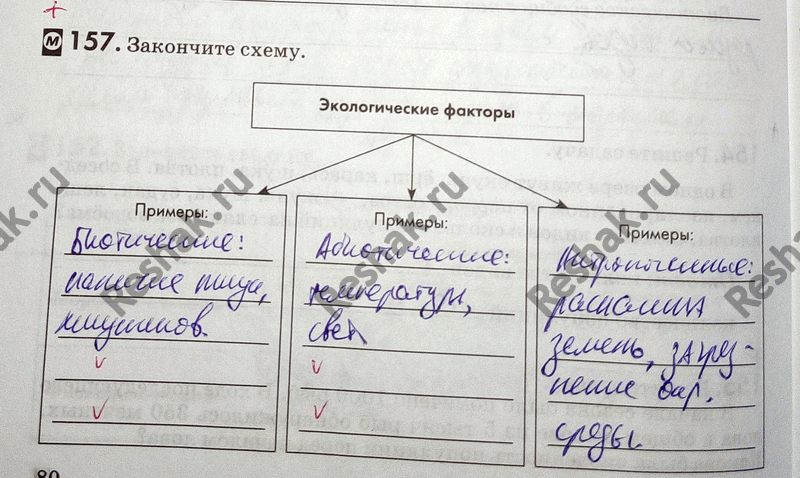 М 157. Закончите схему.
Экологические факторы
Примеры:
Биотические:
наличие пищи,
хищников.
Примеры:
Абиотические:
температура,
свет
Примеры:
Антропогенные:
распашка
земель, загряз-
нение окр.
среды.
Reshak.ru
Reshak.ru
Reshak.ru
Reshak.ru
Reshak.ru
80